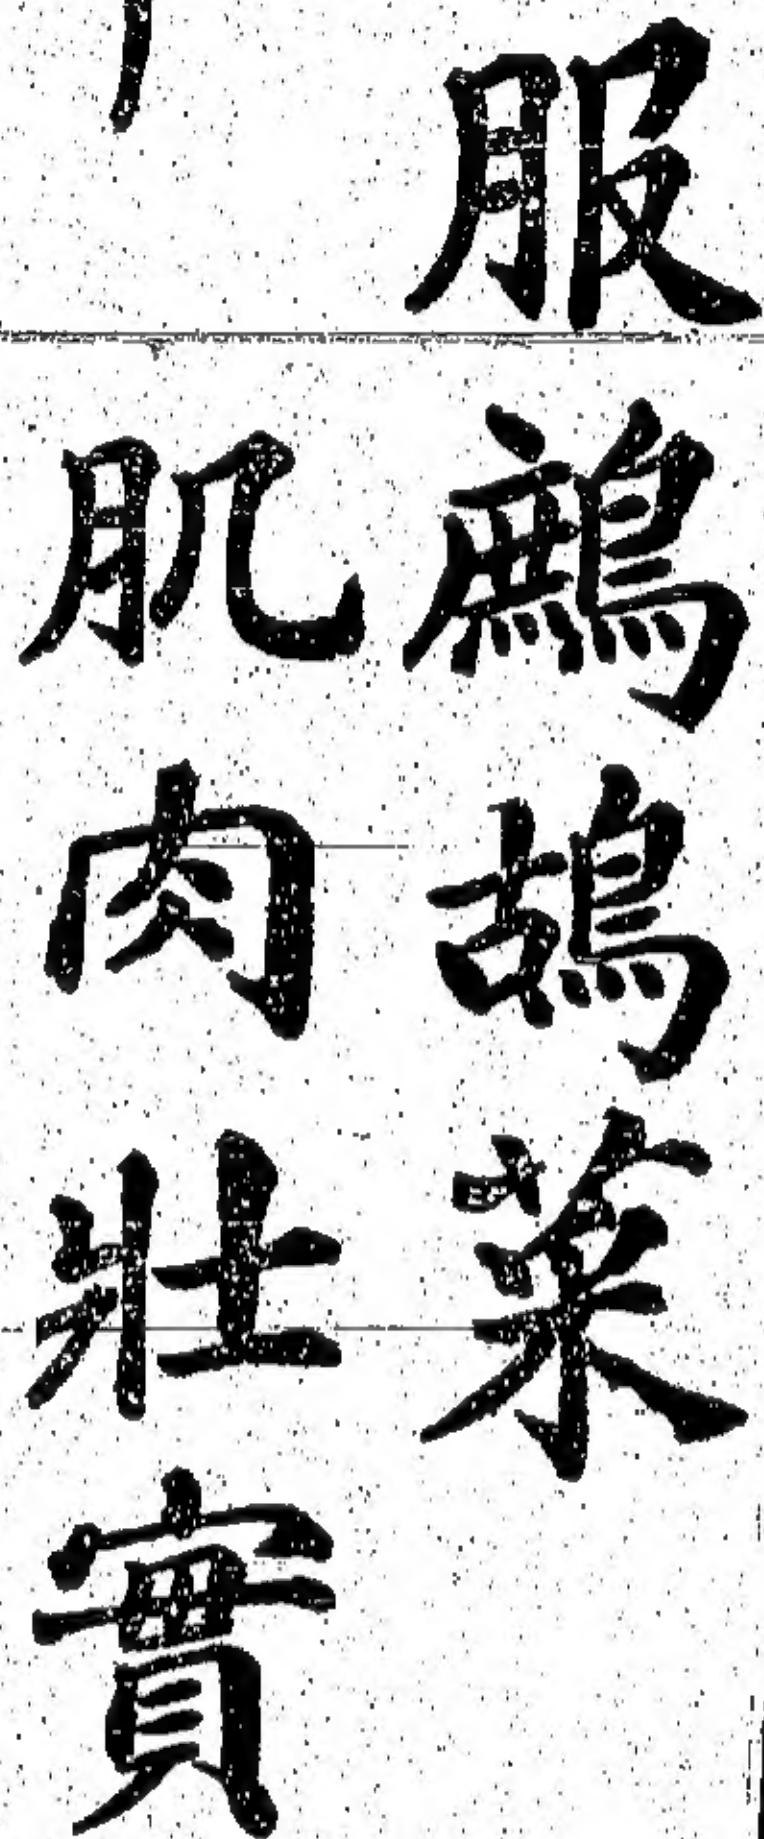 服鷓鴣菜
肌肉壯實